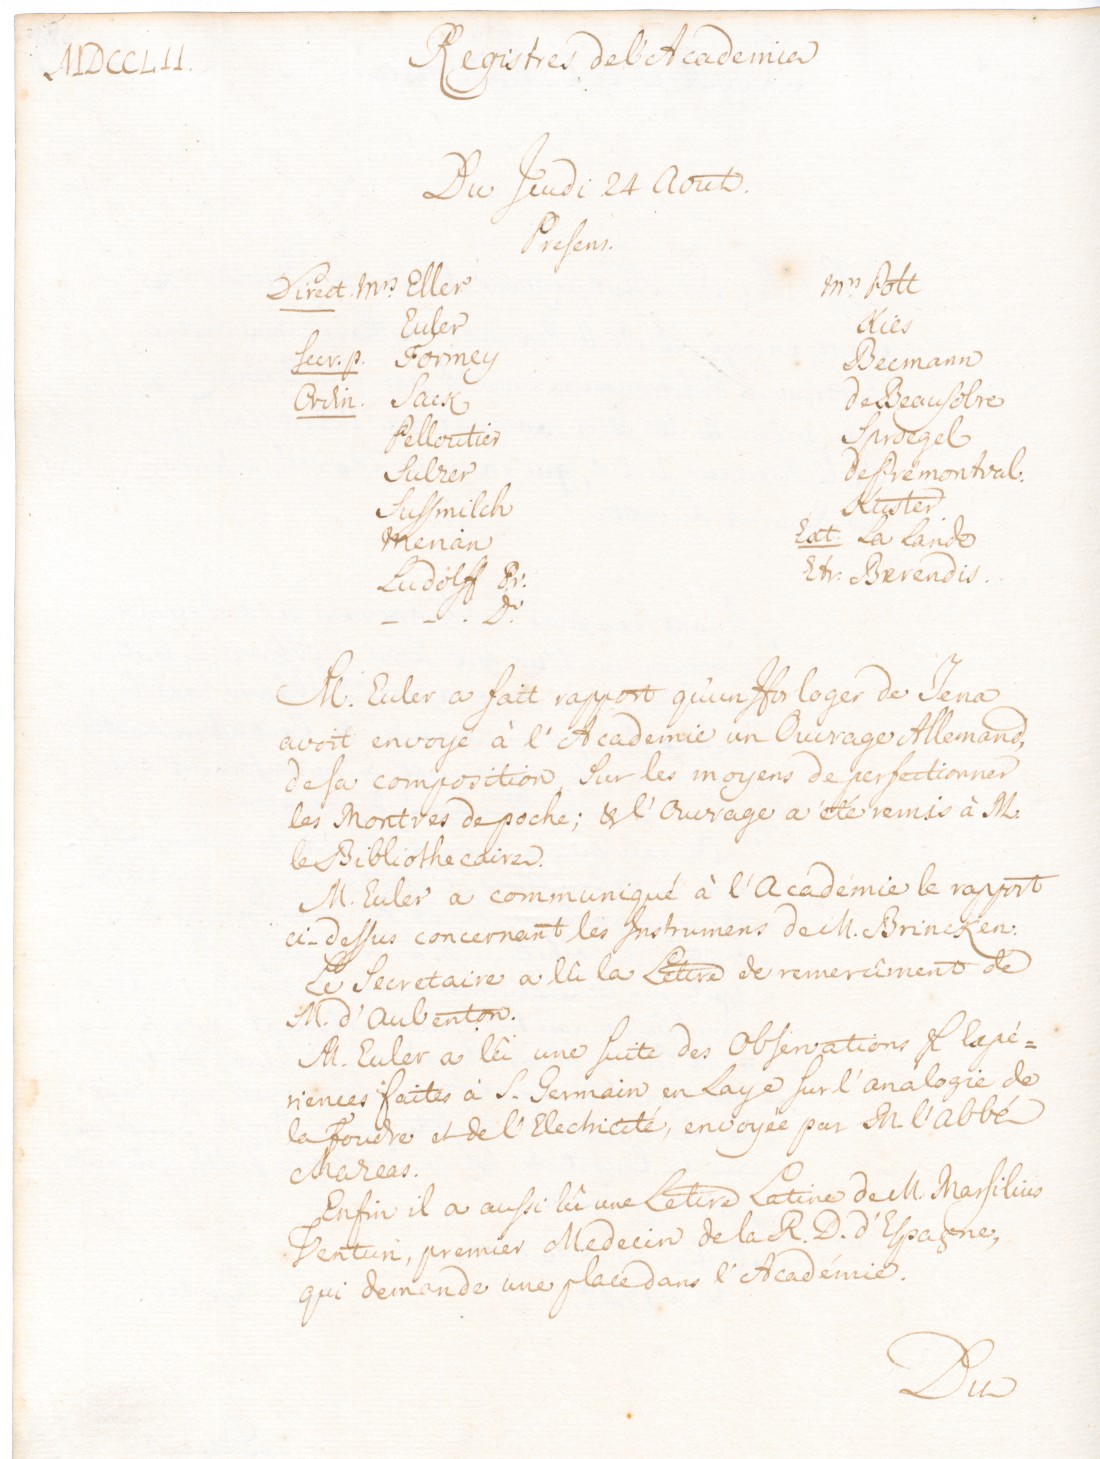 MDCCLII.
Registres de l'Academie
Du Jeudi 24 Aout.
Presens.
Direct. Mrs Eller
Euler
Secr. p. Formey
Ordin. Sack
Pelloutier
Sulzer
Sussmilch
Merian
Ludolff Pr.
_ _ . Dr
Mrs Pott
Kies
Becmann
de Beausobre
Sproegel
de Prémontval.
Kuster
Ext. La Lande
Etr. Berendis.
M. Euler a fait rapport qu'un Horloger de Jena
avoit envoyé à l'Academie un Ouvrage Allemand,
de sa composition, sur les moyens de perfectionner
les Montres de poche; & l'Ouvrage a été remis à M.
le Bibliothecaire.
M. Euler a communiqué à l'Académie le rapport
ci-dessus concernant les Instrumens de M. Brincken.
Le Secretaire a lû la Lettre de remercîment de
M. d'Aubenton.
M. Euler a lû une suite des Observations & Expé=
riences faites à S. Germain en Laye sur l'analogie de
la Foudre et de l'Electricité, envoyée par M l'Abbé
Mazeas.
Enfin il a aussi lû une Lettre Latine de M. Marsilius
Venturi, premier Medecin de la R. D. d'Espagne,
qui demande une place dans l'Académie.
Du